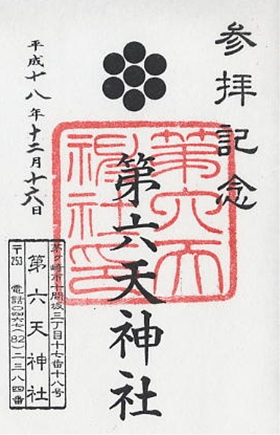 参拝記念
第六天神社
第六天
神社印
平成十八年十二月十六日
茅ヶ崎市十間坂三丁目十七番十八号
第六天神社
〒253 電話0467(82)二三八四番